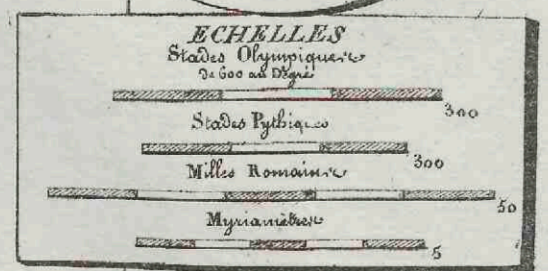 ECHELLES
Stades Olympiques
de 600 au Dégré
300
Stades Pythiques
300
Milles Romains
50
Myriamètres
5